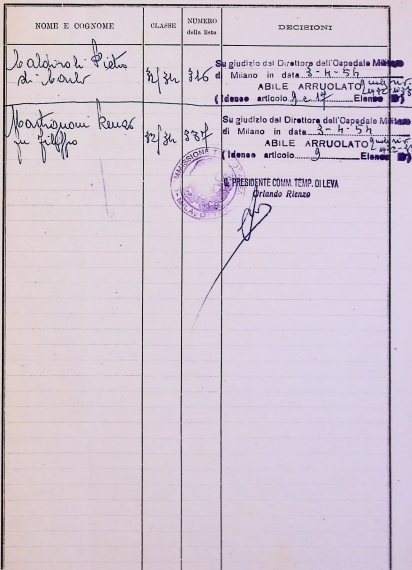 NOME E COGNOME CLASSE NUMERO della lista DECISIONI
Pietro 316 Su giudizio del Direttore dell'Ospedale Militare
di Carlo di Milano in data 3-4-54
ABILE ARRUOLATO
(Idoneo articolo 9 e 17 Elenco B)
Martignoni Renzo 32/34 337 Su giudizio del Direttore dell'Ospedale Militare
fu Filippo di Milano in data 3-4-54
ABILE ARRUOLATO
(Idoneo articolo 9 Elenco B)
IL PRESIDENTE COMM. TEMP. DI LEVA
Orlando Rienzo